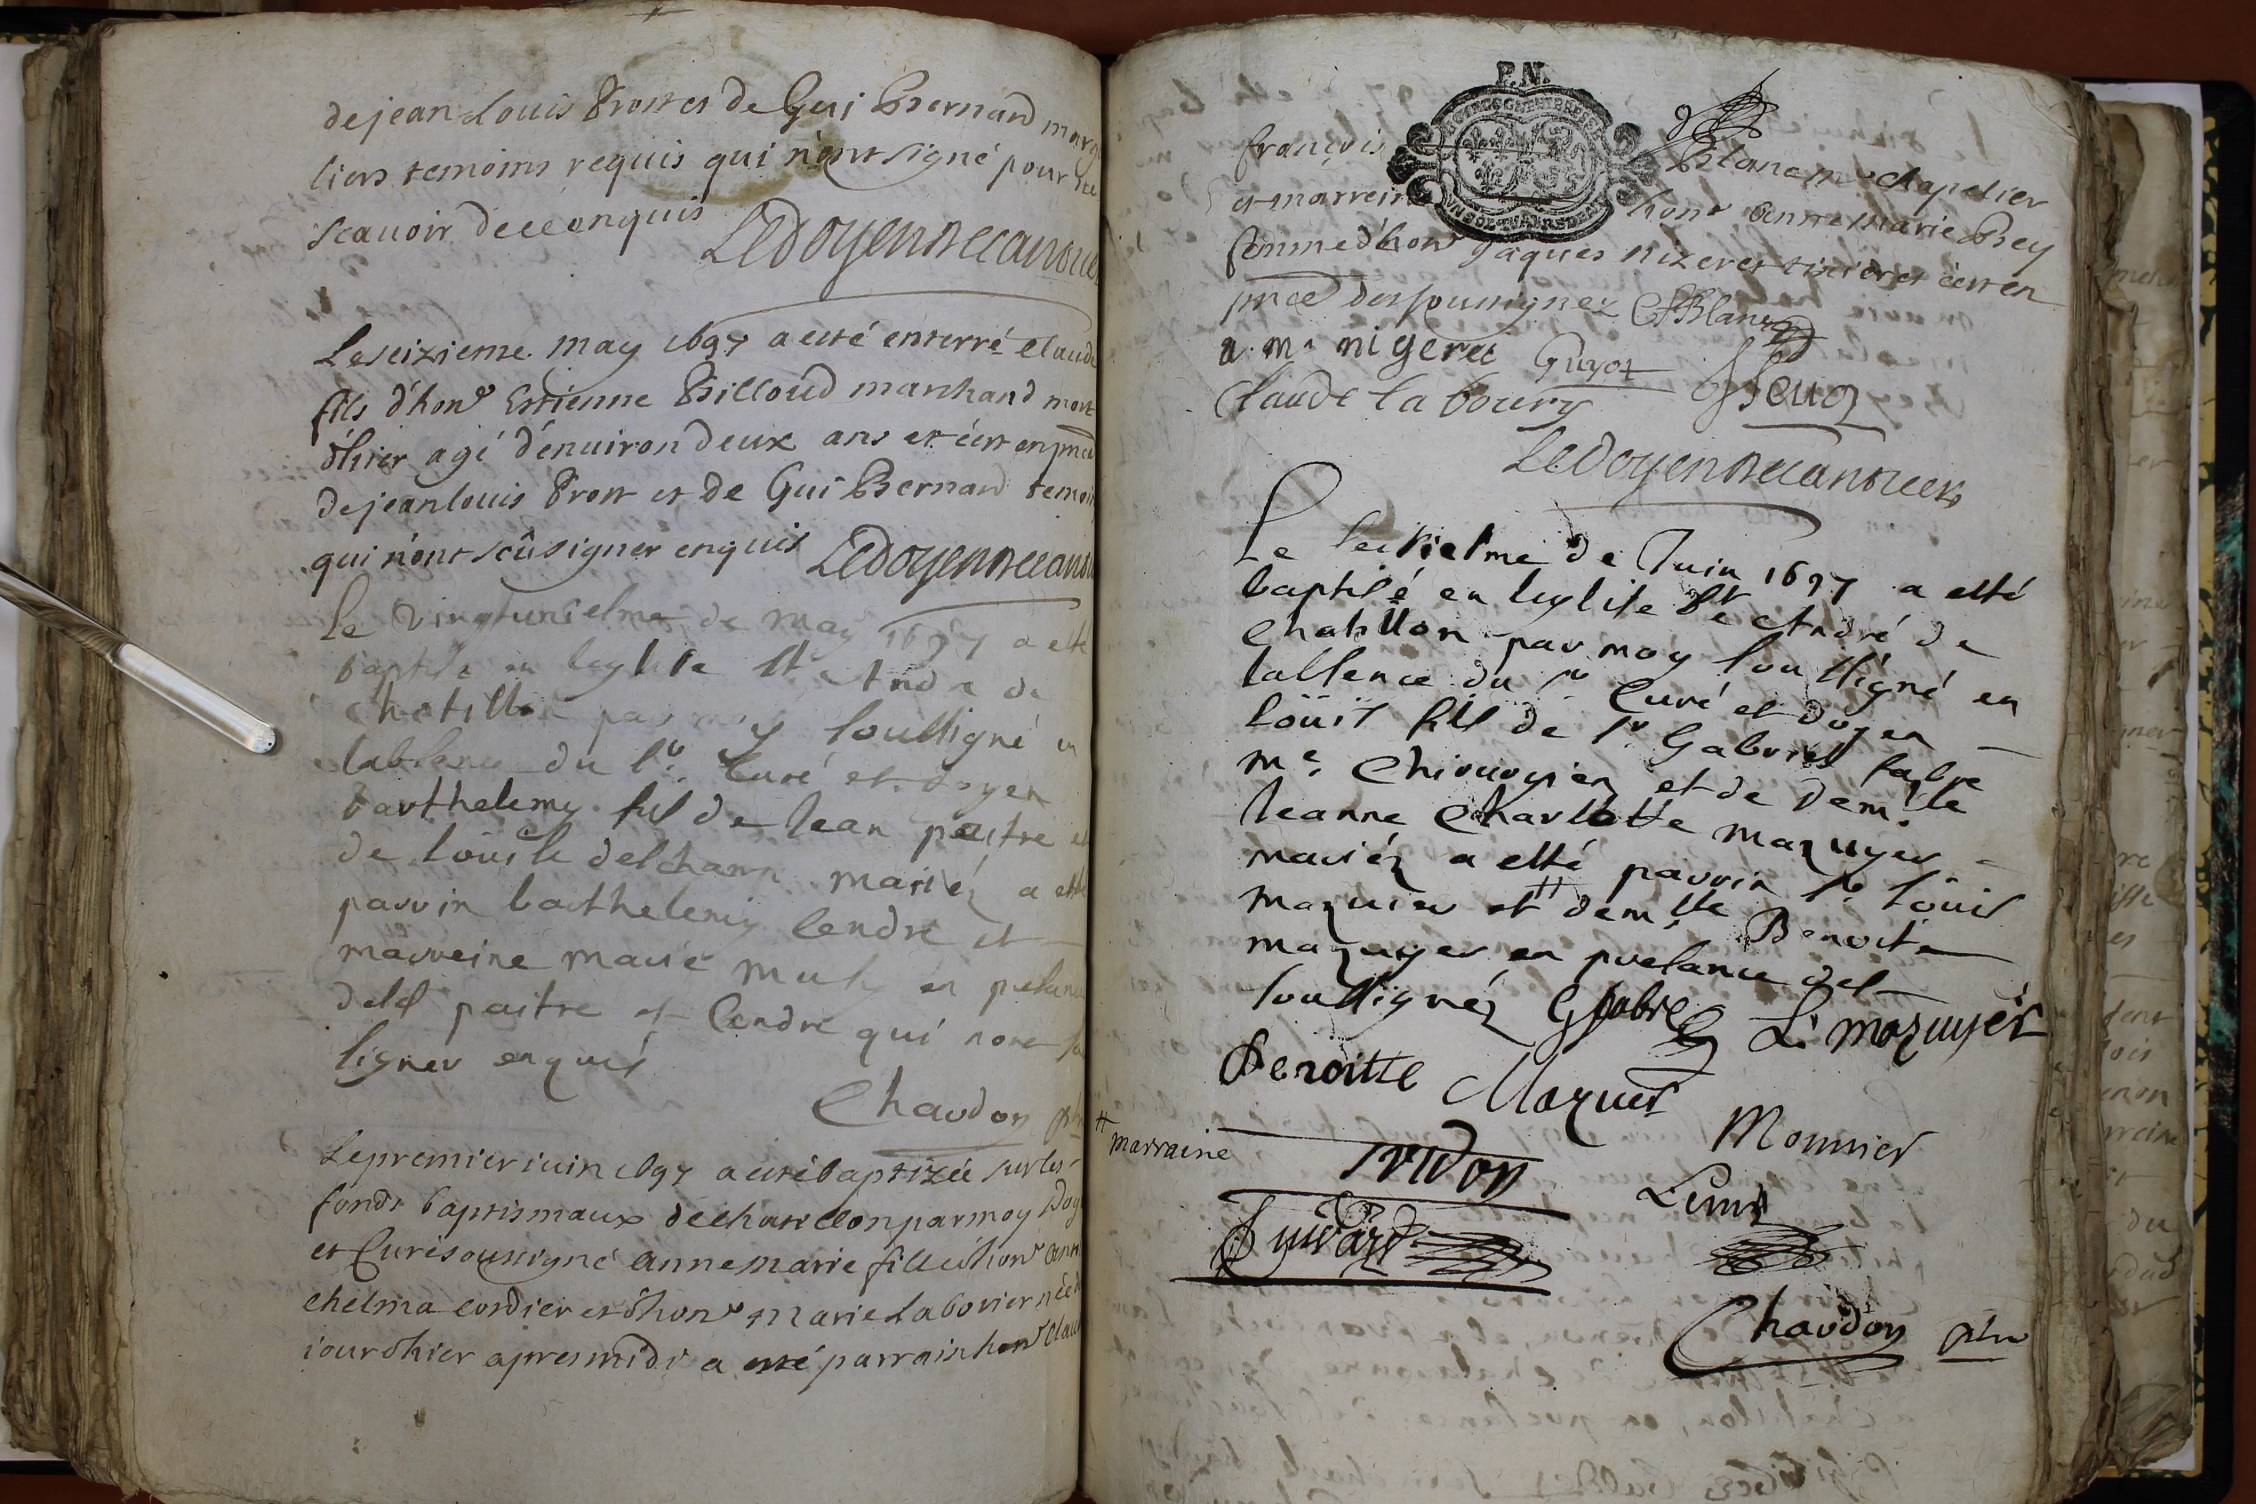 de jean Louis Prost et de Gui Bernard marg
liers temoins requis qui n'ont signé pour ne
scauoir de ce enquis Ledoyen

Le seizieme may 1697 a esté enterré Claude
fils d'hon^e Estienne Billoud marchand mort
d'hier agé d'enuiron deux ans et c'est en pnce
de jean louis Prost et de Gui Bernard temoin
qui n'ont sçû signer enquis Ledoyen
Le vingtuniesme de may 1697 a esté
baptisé en leglise St André de
chatillon par moy soussigné en
labsence du sr. Curé et doyen
barthelemy fils de Jean paitre et
de Loüise deschamp mariéz a esté
parrin barthelemy Cendre et
marreine marie en presence
desd paitre et Cendre qui nont sçu
signer enquis
Chaudon ptre
Le premier iuin 1697 a esté baptizée sur les
fonds baptismaux de chastillon par moy Doy
et Curé soussigné anne marie fille d'hon^r
chelma cordier et d'hon^e Marie Laborier née
iour d'hier apres midi a esté parrain hon^r Claud
P.N.
françois Blanc m^e chapelier
et marreine hon^e anne marie Brey
femme d'hon^r Jaques nizeret tissier et c'est en
pnce des soussignez Blanc
a. m. nigeret Guyot
Claude la boury
Ledoyen
Le seiziesme de Juin 1697 a esté
baptisé en leglise St André de
Chatillon par moy soussigné en
labsence du sr Curé et doyen
Loüis fils de sr Gabriel fabre
m^e. Chirurgien et de dem^lle
Jeanne Charlotte mazuyer
mariéz a esté parrin sr. Loüis
mazuier et # dem^lle Benoite
mazuyer en presence des
soussignéz G fabre L. mazuyer
Benoitte Mazuier
# marraine
Monnier
Chaudon ptre